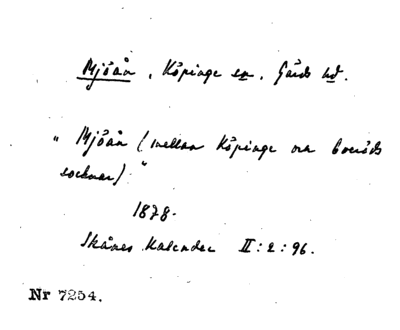 Mjöån, Köpinge sn, Gärds hd.
" Mjöån (mellan Köpinge och Everöds
socknar)."
1878.
Skånes Kalender II:2:96.
Nr 7254.